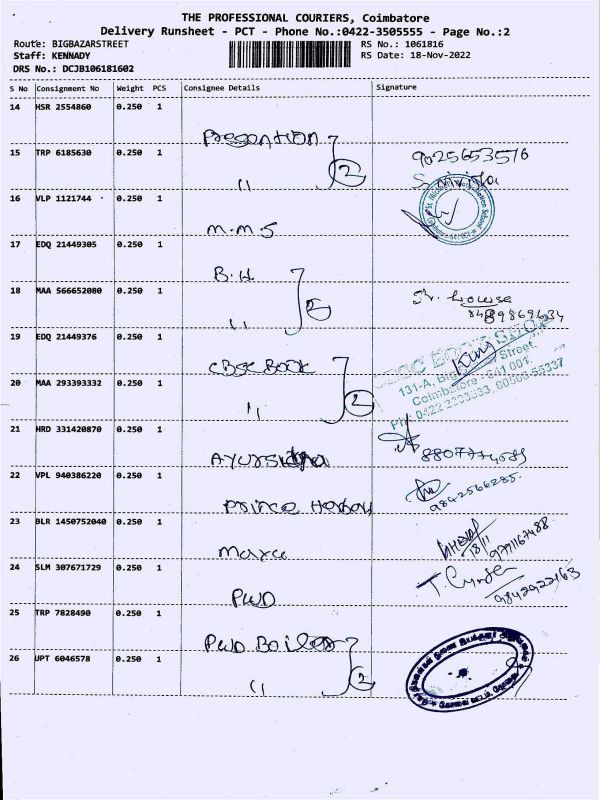 THE PROFESSIONAL COURIERS, Coimbatore
Delivery Runsheet - PCT - Phone No.:0422-3505555 - Page No.:2
Route: BIGBAZARSTREET RS No.: 1061816
Staff: KENNADY RS Date: 18-Nov-2022
DRS No.: DCJB106181602
S No Consignment No Weight PCS Consignee Details Signature
14 HSR 2554860 0.250 1
Presention
15 TRP 6185630 0.250 1 9025653576
" 2
16 VLP 1121744 0.250 1
M.M.S
17 EDQ 21449305 0.250 1
B.H
18 MAA 566652080 0.250 1 Sr. Lowse
" 2 8489869634
19 EDQ 21449376 0.250 1
CBSC BOOK King Street,
131-A, Big
20 MAA 293393332 0.250 1 Coimbatore - 641 001.
" 2 Ph: 0422 55337
21 HRD 331420870 0.250 1
22 VPL 940386220 0.250 1
Prince 9842566285.
23 BLR 1450752040 0.250 1
18/11
24 SLM 307671729 0.250 1
PWD 9842922163
25 TRP 7828490 0.250 1
PWD Boiler
26 UPT 6046578 0.250 1
" 2